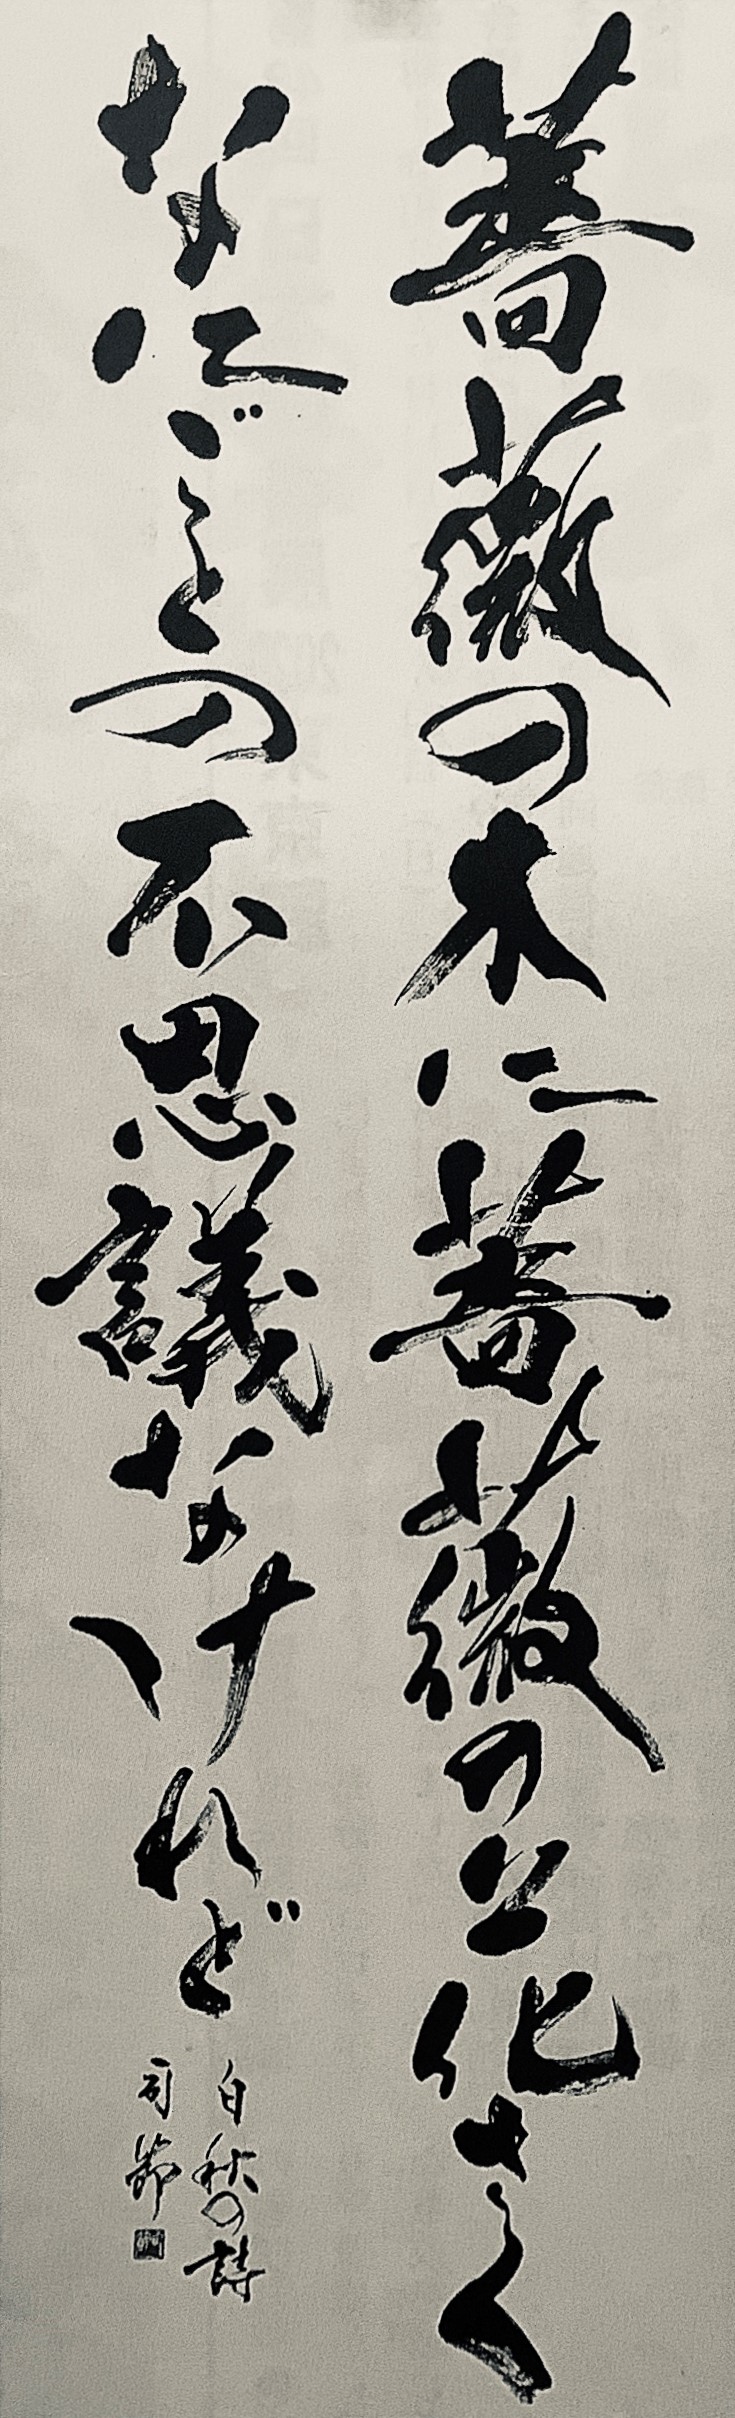 薔薇の木に薔薇の花さく
なにごとの不思議なけれど
白秋の詩
司節